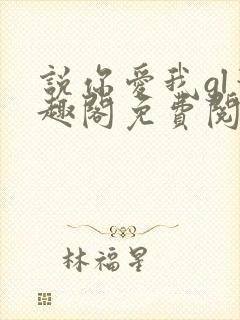 說你愛我gl
趣閣免費閱
林福星